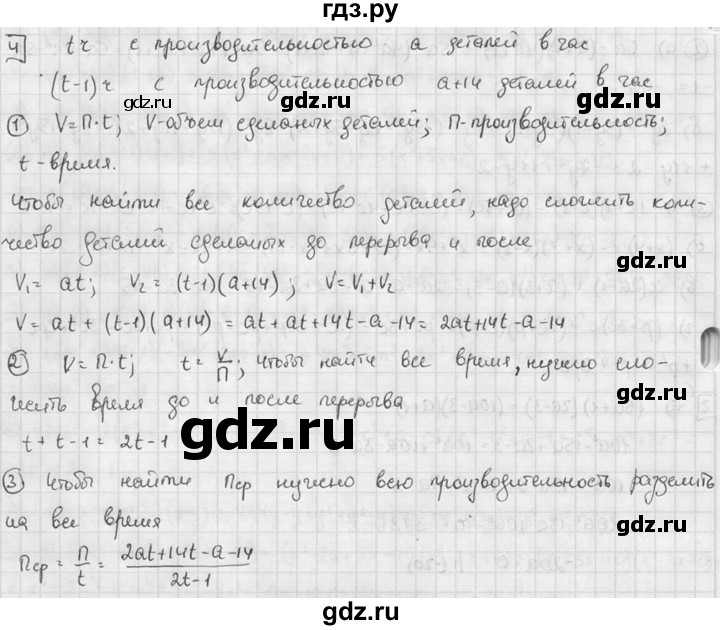 гдз.ру
4 t ч с производительностью a деталей в час
(t-1) ч с производительностью a+14 деталей в час
gdz.ru gdz.ru
① V=П·t; V-объем сделаных деталей; П-производительность;
t-время.
Чтобы найти все количество деталей, надо сложить коли-
чество деталей сделаных до перерыва и после
gdz.ru
V₁= at; V₂= (t-1)(a+14); V=V₁+V₂
V= at + (t-1)(a+14) = at+at+14t-a-14= 2at+14t-a-14
② V=П·t; t=V/П; чтобы найти все время, нужно сло-
жить время до и после перерыва
gdz.ru
t+t-1= 2t-1
③ Чтобы найти Пср нужно всю производительность разделить
на все время
gdz.ru
Пср = П/t = (2at+14t-a-14)/(2t-1)
gdz.ru gdz.ru